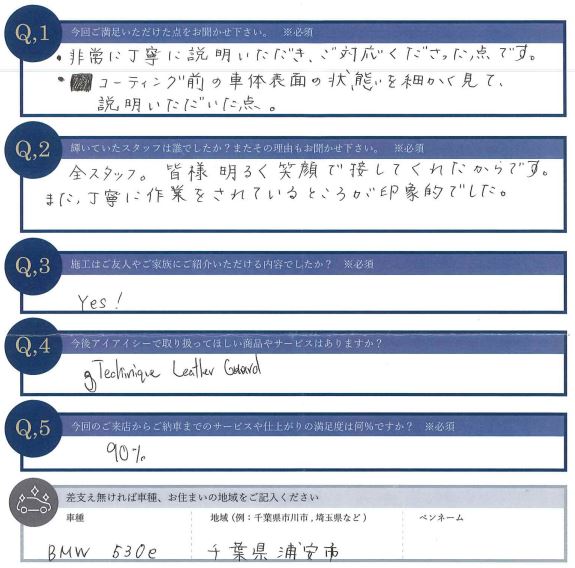 Q,1 今回ご満足いただけた点をお聞かせ下さい。 ※必須
・非常に丁寧に説明いただき、ご対応くださった点です。
・コーティング前の車体表面の状態を細かく見て、
説明いただいた点。
Q,2 輝いていたスタッフは誰でしたか？またその理由もお聞かせ下さい。 ※必須
全スタッフ。皆様明るく笑顔で接してくれたからです。
また、丁寧に作業をされているところが印象的でした。
Q,3 施工はご友人やご家族にご紹介いただける内容でしたか？ ※必須
Yes!
Q,4 今後アイアイシーで取り扱ってほしい商品やサービスはありますか？
gTechnique Leather Guard
Q,5 今回のご来店からご納車までのサービスや仕上がりの満足度は何%ですか？ ※必須
90%
差支え無ければ車種、お住まいの地域をご記入ください
車種 地域（例：千葉県市川市，埼玉県など） ペンネーム
BMW 530e 千葉県浦安市